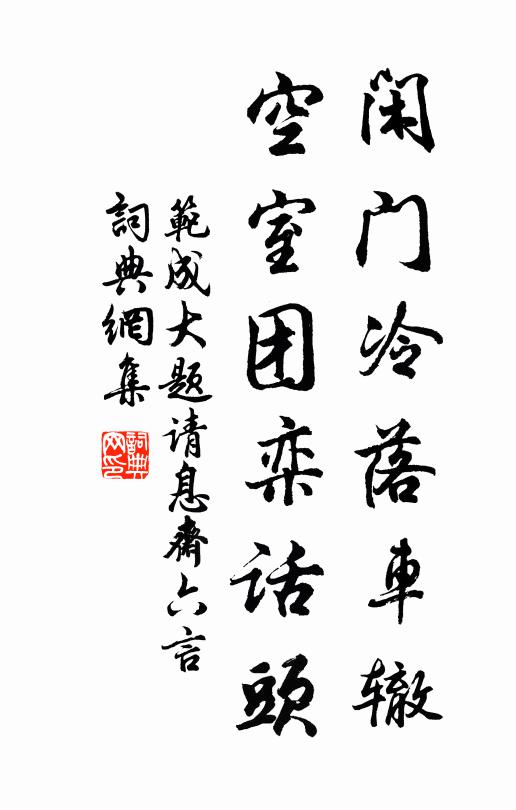 闲门冷落車辙
空室团栾话頭
範成大题请息齋六言
詞典網集
詞典网印